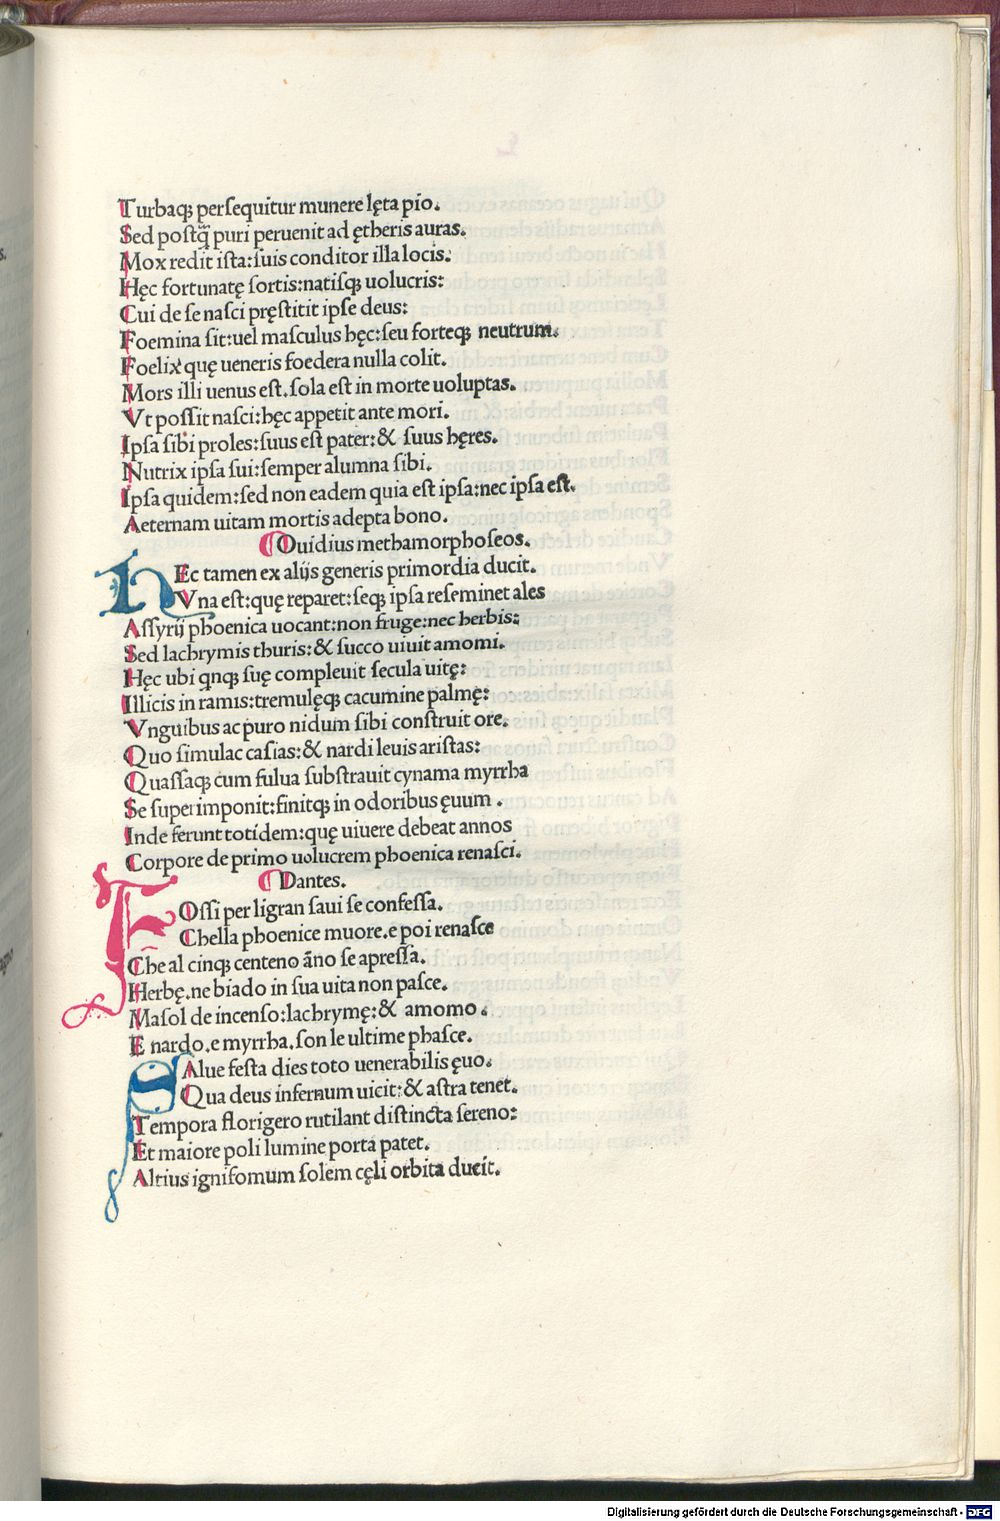 Turbaqꝫ perſequitur munere lęta pio.
Sed poſtꝗ̃ puri peruenit ad ętheris auras.
Mox redit iſta:ſuis conditor illa locis:
Hęc fortunatę ſortis:natiſqꝫ uolucris:
Cui de ſe naſci pręſtitit ipſe deus:
Foemina ſit:uel maſculus hęc:ſeu forteqꝫ neutrum.
Foelix quę ueneris foedera nulla colit.
Mors illi uenus eſt.ſola eſt in morte uoluptas.
Vt poſſit naſci:hęc appetit ante mori.
Ipſa ſibi proles:ſuus eſt pater:& ſuus hęres.
Nutrix ipſa ſui:ſemper alumna ſibi.
Ipſa quidem:ſed non eadem quia eſt ipſa:nec ipſa eſt.
Aeternam uitam mortis adepta bono.
Ouidius methamorphoſeos.
HEc tamen ex alijs generis primordia ducit.
Vna eſt:quę reparet:ſeqꝫ ipſa reſeminet ales
Aſſyrij phoenica uocant:non fruge:nec herbis:
Sed lachrymis thuris:& ſucco uiuit amomi.
Hęc ubi qnqꝫ ſuę compleuit ſecula uitę:
Illicis in ramis:tremulęqꝫ cacumine palmę:
Vnguibus ac puro nidum ſibi conſtruit ore.
Quo ſimulac caſias:& nardi leuis ariſtas:
Quaſſaqꝫ cum fulua ſubſtrauit cynama myrrha
Se ſuperimponit:finitqꝫ in odoribus ęuum .
Inde ferunt totidem:quę uiuere debeat annos
Corpore de primo uolucrem phoenica renaſci.
Dantes.
FOſſi per ligran ſaui ſe confeſſa.
Chella phoenice muore.e poi renaſce
Che al cinqꝫ centeno ãno ſe apreſſa.
Herbę.ne biado in ſua uita non paſce.
Maſol de incenſo:lachrymę:& amomo .
E nardo.e myrrha.ſon le ultime phaſce.
SAlue feſta dies toto uenerabilis ęuo.
Qua deus infernum uicit:& aſtra tenet.
Tempora florigero rutilant diſtincta ſereno:
Et maiore poli lumine porta patet.
Altius igniſomum ſolem cęli orbita ducit.
Digitalisierung gefördert durch die Deutsche Forschungsgemeinschaft - DFG